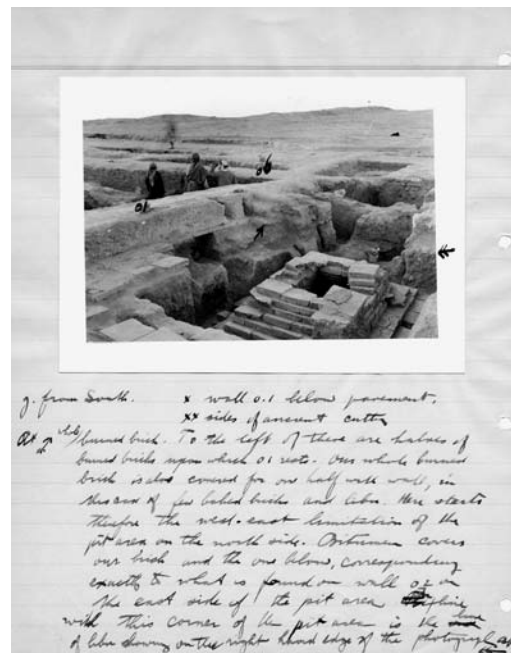 g. from South. x wall 0.1 below pavement.
xx sides of ancient cutting
At whole burned brick. To the left of these are halves of
burned bricks upon which 01 rests. Our whole burned
brick is also covered for one half with wall, in
this case of few baked bricks and libn. Here starts
therefore the west-east limitation of the
pit area on the north side. Bitumen covers
our brick and the one below, corresponding
exactly to what is found on wall 02 on
the east side of the pit area
with this corner of the pit area is the
of libn showing on the right hand edge of the photograph